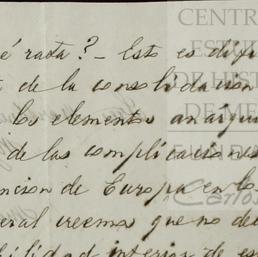 é rada? – Esto es difí
de la consolidacion
los elementos anarqui
de las complicaciones
ncion de Europa en lo
eral creemos que no de
bilidad interior de es
CENTR
ESTU
DE HIST
DE ME
FUNDA
Carlos